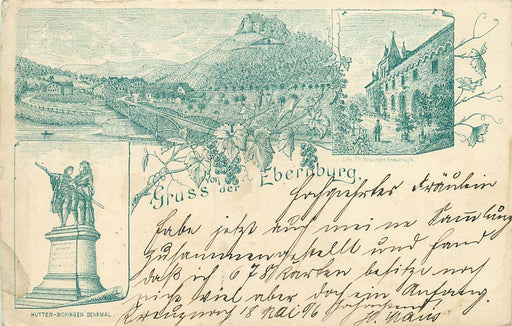 Lith. Th. Messinger, Kreuznach.
Gruss von der Ebernburg.
HUTTEN-SICKINGEN DENKMAL
Hochgeehrtes Fräulein
habe jetzt auch meine Sammlung
zusammengestellt und fand
daß ich 678 Karten besitze noch
nicht viel aber doch ein Anfang
Kreuznach 18 Mai 96 Hochachtend